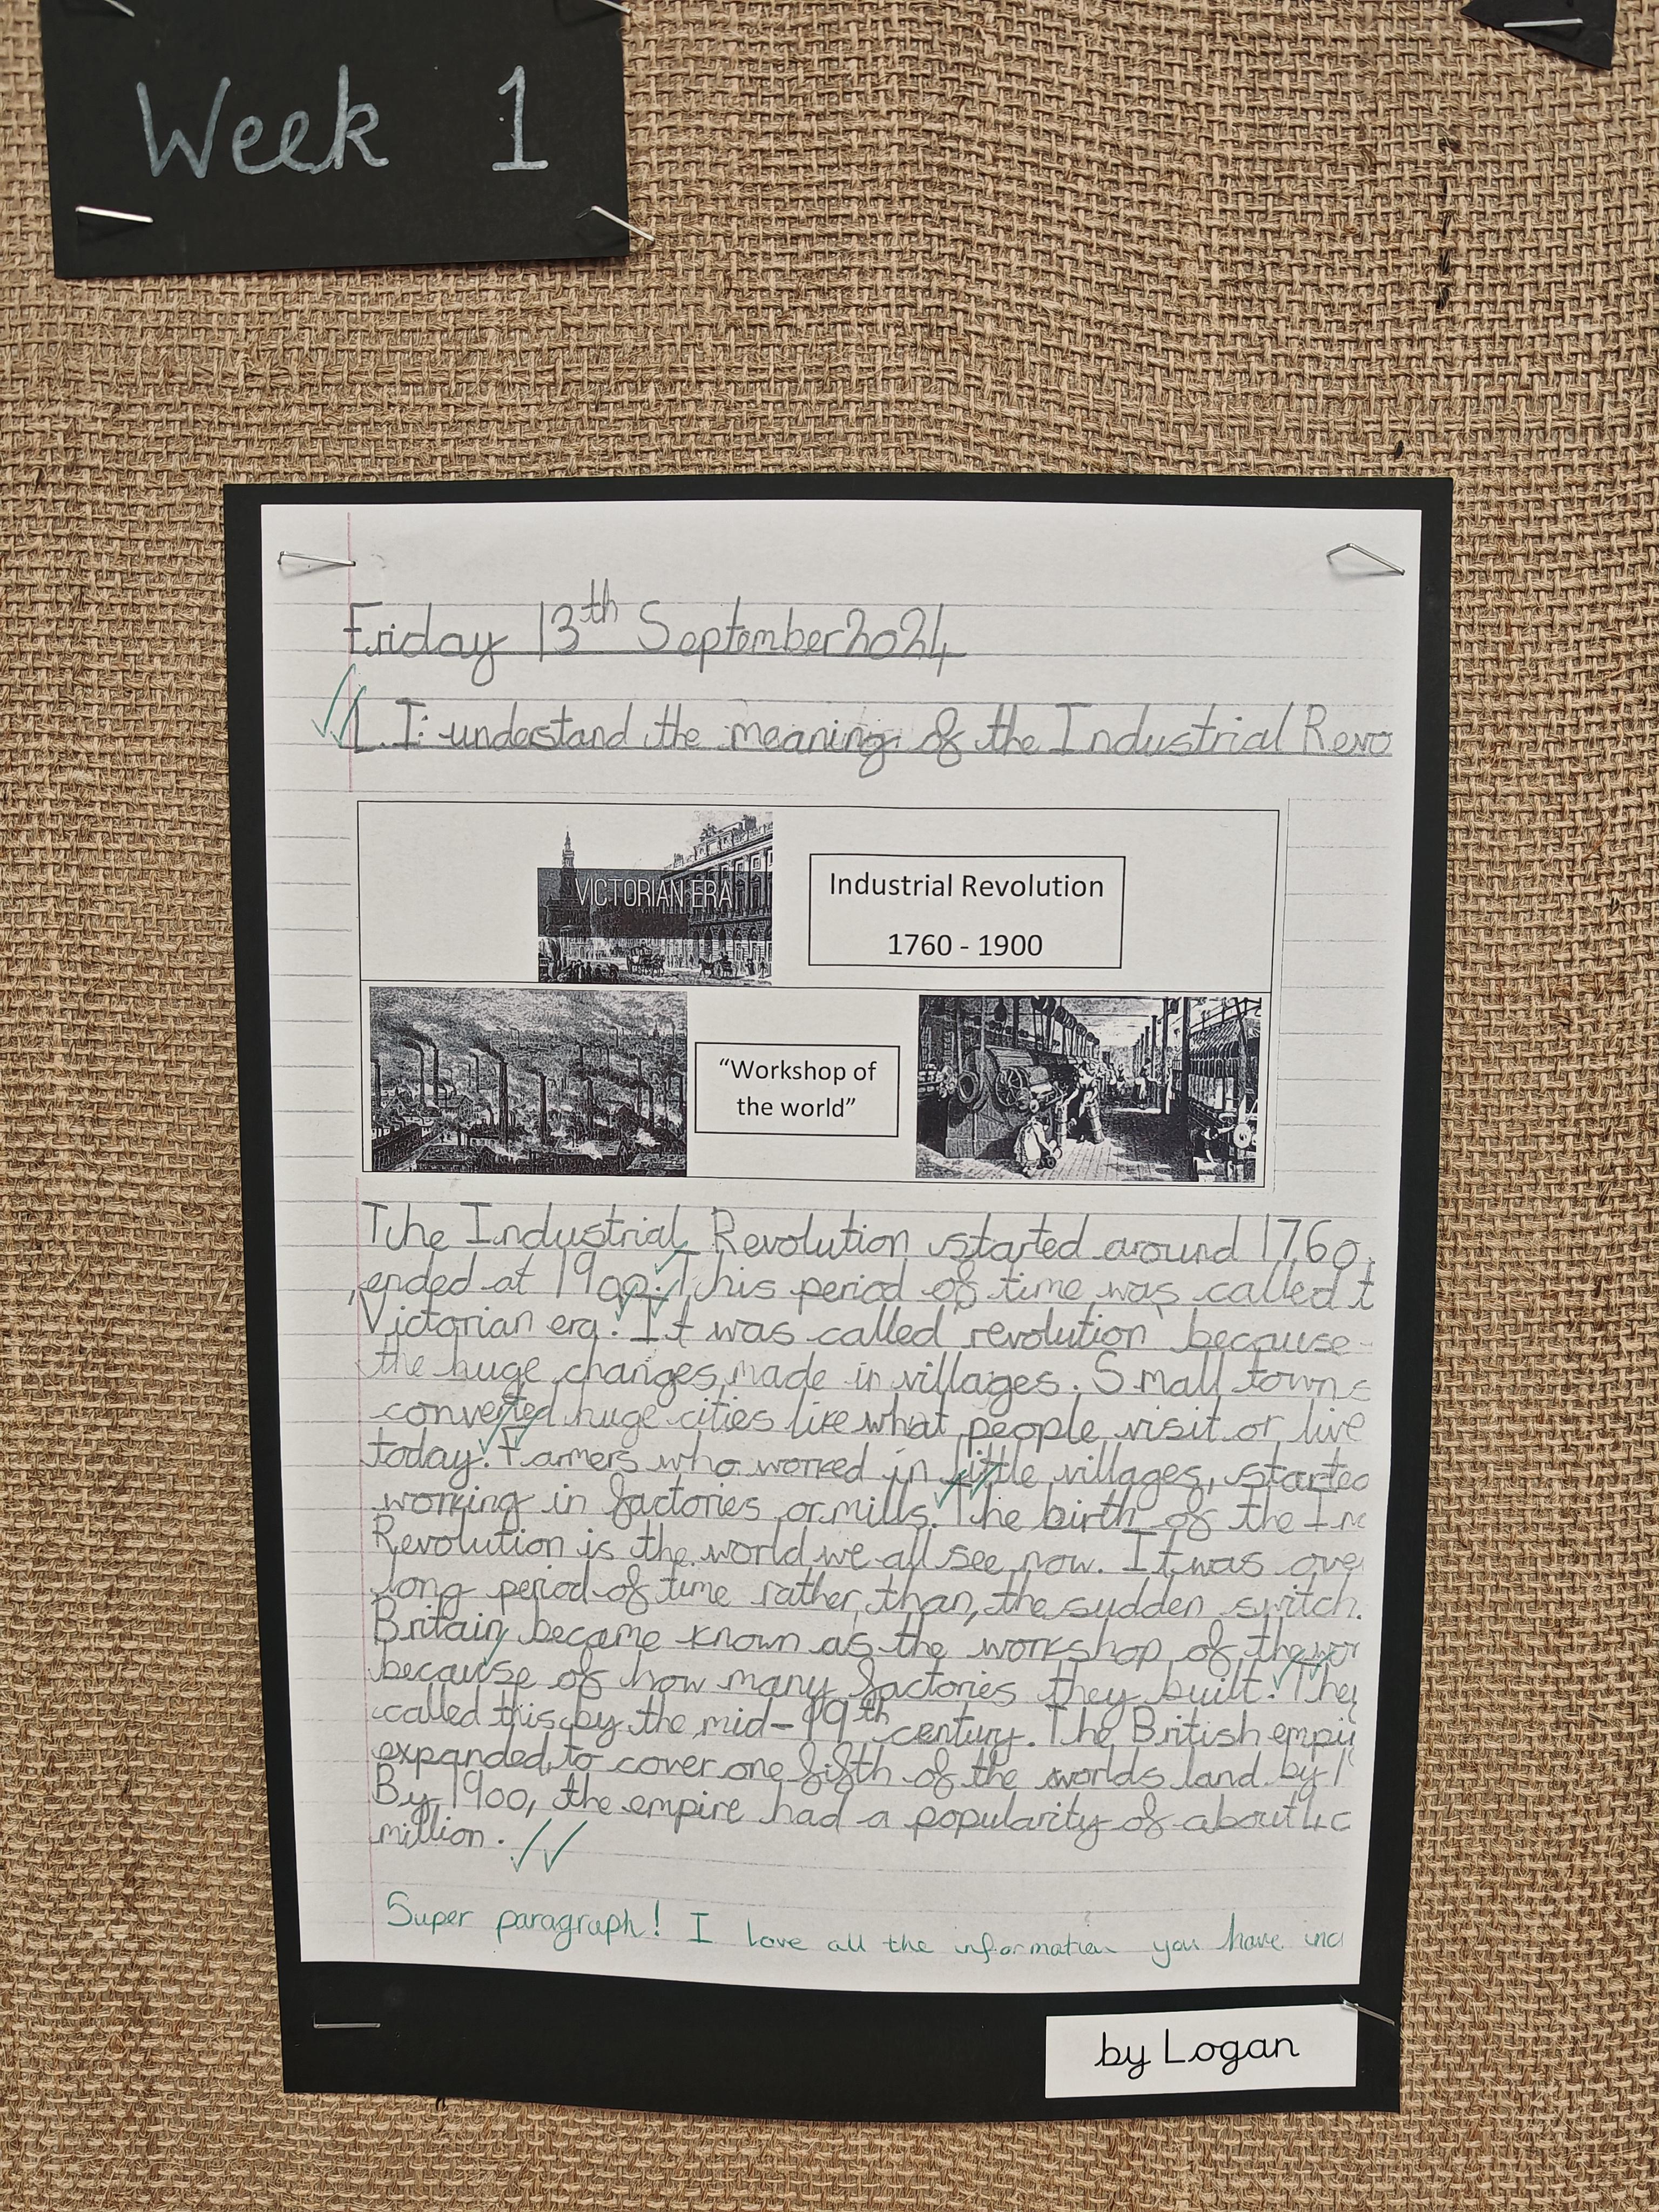 Week 1
Friday 13th September 2024
L.I: understand the meaning of the Industrial Revo
VICTORIAN ERA
Industrial Revolution
1760 - 1900
“Workshop of
the world”
The Industrial Revolution started around 1760,
ended at 1900. This period of time was called t
Victorian era. It was called 'revolution' because
the huge changes made in villages. Small towns
converted huge cities like what people visit or live
today. Farmers who worked in little villages, started
working in factories or mills. The birth of the In
Revolution is the world we all see now. It was over
long period of time rather, than, the sudden switch.
Britain became known as the workshop of the wor
because of how many factories they built. They
called this by the mid-19th century. The British empi
expanded, to cover one fifth of the worlds land by 1
By 1900, the empire had a popularity of about 4
million.
Super paragraph! I love all the information you have inc
by Logan